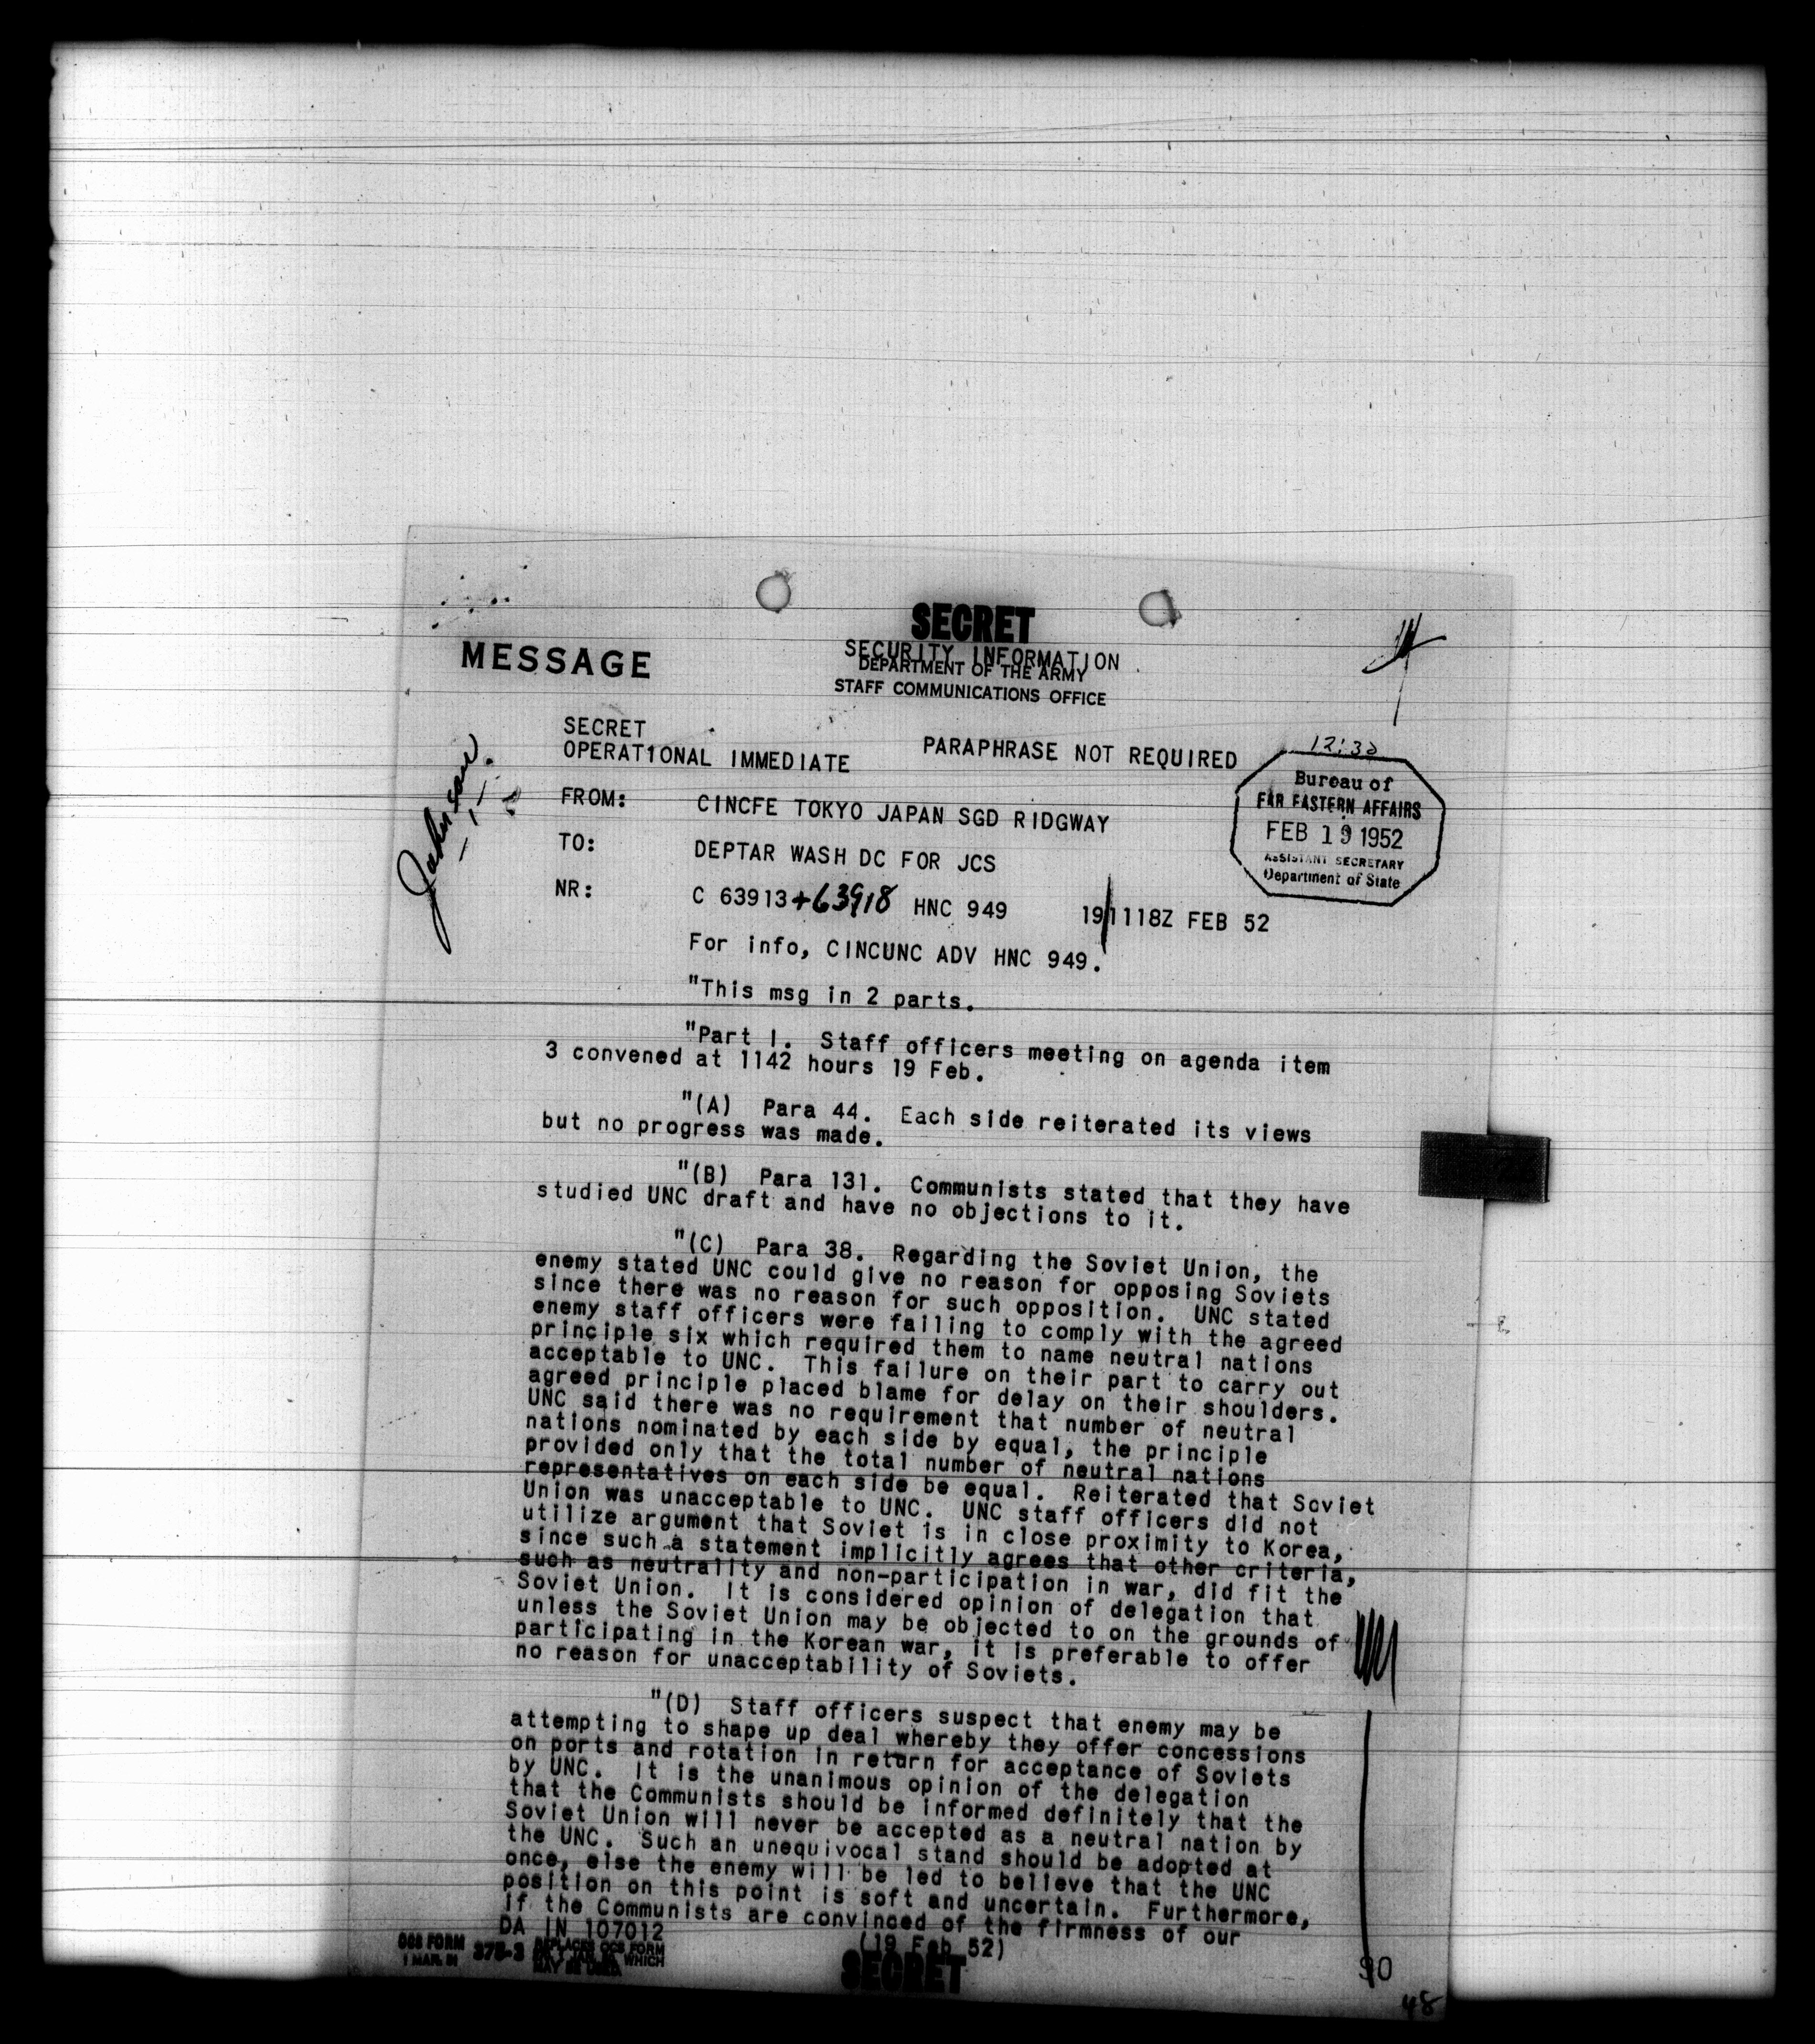 SECRET
SECURITY INFORMATION
MESSAGE
DEPARTMENT OF THE ARMY
STAFF COMMUNICATIONS OFFICE
SECRET
OPERATIONAL IMMEDIATE
PARAPHRASE NOT REQUIRED
12:32
Bureau of
FAR EASTERN AFFAIRS
FEB 19 1952
ASSISTANT SECRETARY
Department of State
Johnson
FROM: CINCFE TOKYO JAPAN SGD RIDGWAY
TO: DEPTAR WASH DC FOR JCS
NR: C 63913+63918 HNC 949 191118Z FEB 52
For info, CINCUNC ADV HNC 949.
"This msg in 2 parts.
"Part I. Staff officers meeting on agenda item
3 convened at 1142 hours 19 Feb.
"(A) Para 44. Each side reiterated its views
but no progress was made.
"(B) Para 131. Communists stated that they have
studied UNC draft and have no objections to it.
"(C) Para 38. Regarding the Soviet Union, the
enemy stated UNC could give no reason for opposing Soviets
since there was no reason for such opposition. UNC stated
enemy staff officers were failing to comply with the agreed
principle six which required them to name neutral nations
acceptable to UNC. This failure on their part to carry out
agreed principle placed blame for delay on their shoulders.
UNC said there was no requirement that number of neutral
nations nominated by each side by equal, the principle
provided only that the total number of neutral nations
representatives on each side be equal. Reiterated that Soviet
Union was unacceptable to UNC. UNC staff officers did not
utilize argument that Soviet is in close proximity to Korea,
since such a statement implicitly agrees that other criteria,
such as neutrality and non-participation in war, did fit the
Soviet Union. It is considered opinion of delegation that
unless the Soviet Union may be objected to on the grounds of
participating in the Korean war, it is preferable to offer
no reason for unacceptability of Soviets.
"(D) Staff officers suspect that enemy may be
attempting to shape up deal whereby they offer concessions
on ports and rotation in return for acceptance of Soviets
by UNC. It is the unanimous opinion of the delegation
that the Communists should be informed definitely that the
Soviet Union will never be accepted as a neutral nation by
the UNC. Such an unequivocal stand should be adopted at
once, else the enemy will be led to believe that the UNC
position on this point is soft and uncertain. Furthermore,
if the Communists are convinced of the firmness of our
DA IN 107012
(19 Feb 52)
OCS FORM 375-3 REPLACES OCS FORM
1 MAR. 51
WHICH
MAY BE USED.
SECRET
90
48